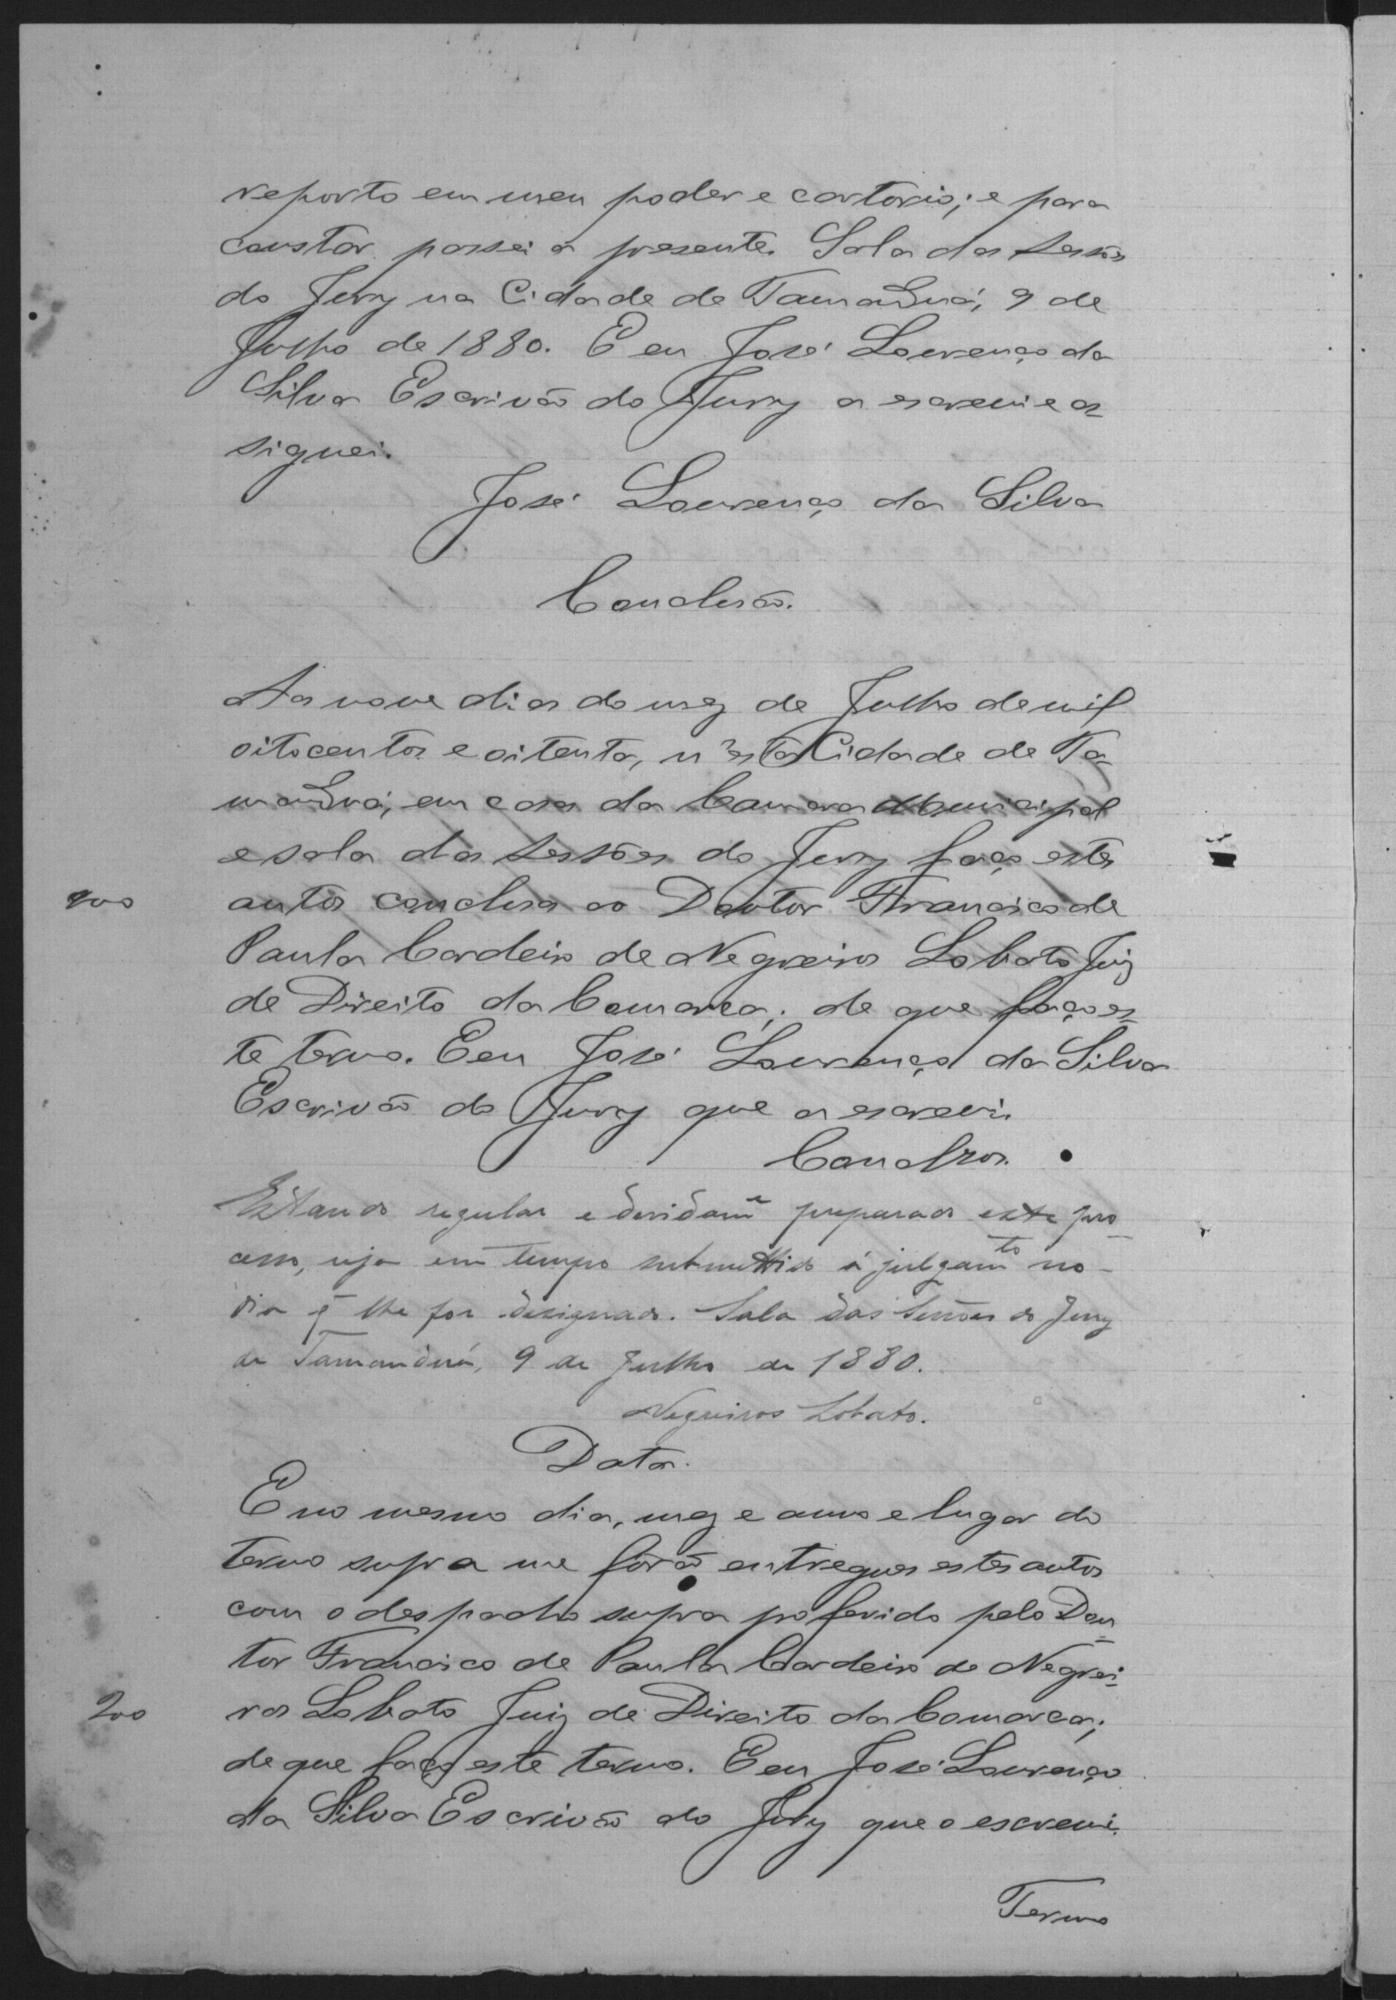 reporto em meu poder e cartorio; e para
constar passei a presente. Sala das Sessões
do Jury na Cidade de Tamanduá, 9 de
Julho de 1880. E eu José Lourenço da
Silva Escrivão do Jury a escrevi e as
signei.
José Lourenço da Silva
Conclusão.
Aos nove dias do mez de Julho de mil
oitocentos e oitenta, n'esta Cidade de Ta-
manduá, em casa da Camara Municipal
e sala das Sessões do Jury faço estes
200 autos conclusos ao Doutor Francisco de
Paula Cordeiro de Negreiros Lobato Juiz
de Direito da Comarca; de que faço es-
te termo. E eu José Lourenço da Silva
Escrivão do Jury que a escrevi.
Conclzos.
Estando regular e devidamᵉ preparado este pro-
cesso, seja em tempo submettido á julgamᵗᵒ no
dia q̃ lhe for designado. Sala das Sessões do Jury
de Tamanduá, 9 de Julho de 1880.
Negreiros Lobato.
Data.
E no mesmo dia, mez e anno e lugar do
termo supra me forão entregues estes autos
com o despacho supra proferido pelo Dou-
tor Francisco de Paula Cordeiro de Negrei-
200 ros Lobato Juiz de Direito da Comarca;
de que faço este termo. E eu José Lourenço
da Silva Escrivão do Jury que o escrevi.
Termo